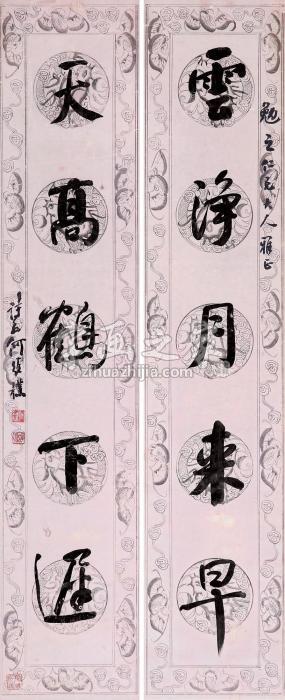 勉之仁兄大人雅正
雲淨月來早
天高鶴下遲
詩孫何維樸
字画之家
zihuazhijia.com